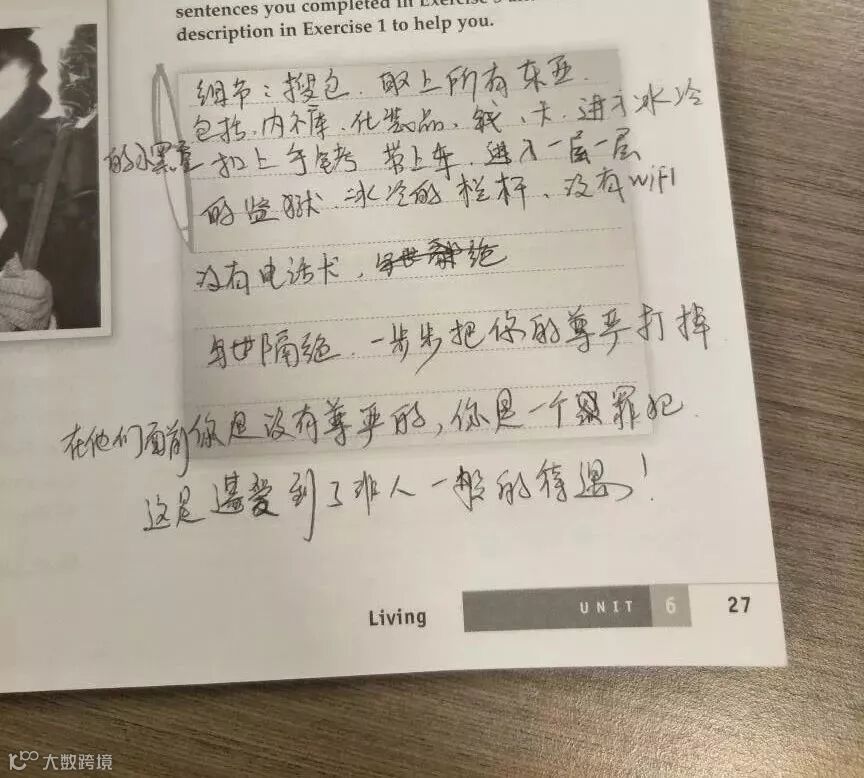 sentences you completed in Exercise 3 an
description in Exercise 1 to help you.
细节：搜包．取上所有东西．
包括，内衣库．化装品、钱、卡．进了冰冷
的小黑屋 扣上手铐 带上车．进入一层一层
的监狱．冰冷的栏杆、没有WiFi
没有电话卡，
与世隔绝．一步步把你的尊严打掉
在他们面前你是没有尊严的，你是一个罪犯．
这是遭受到了非人一般的待遇！
Living
UNIT 6
27
大数跨境